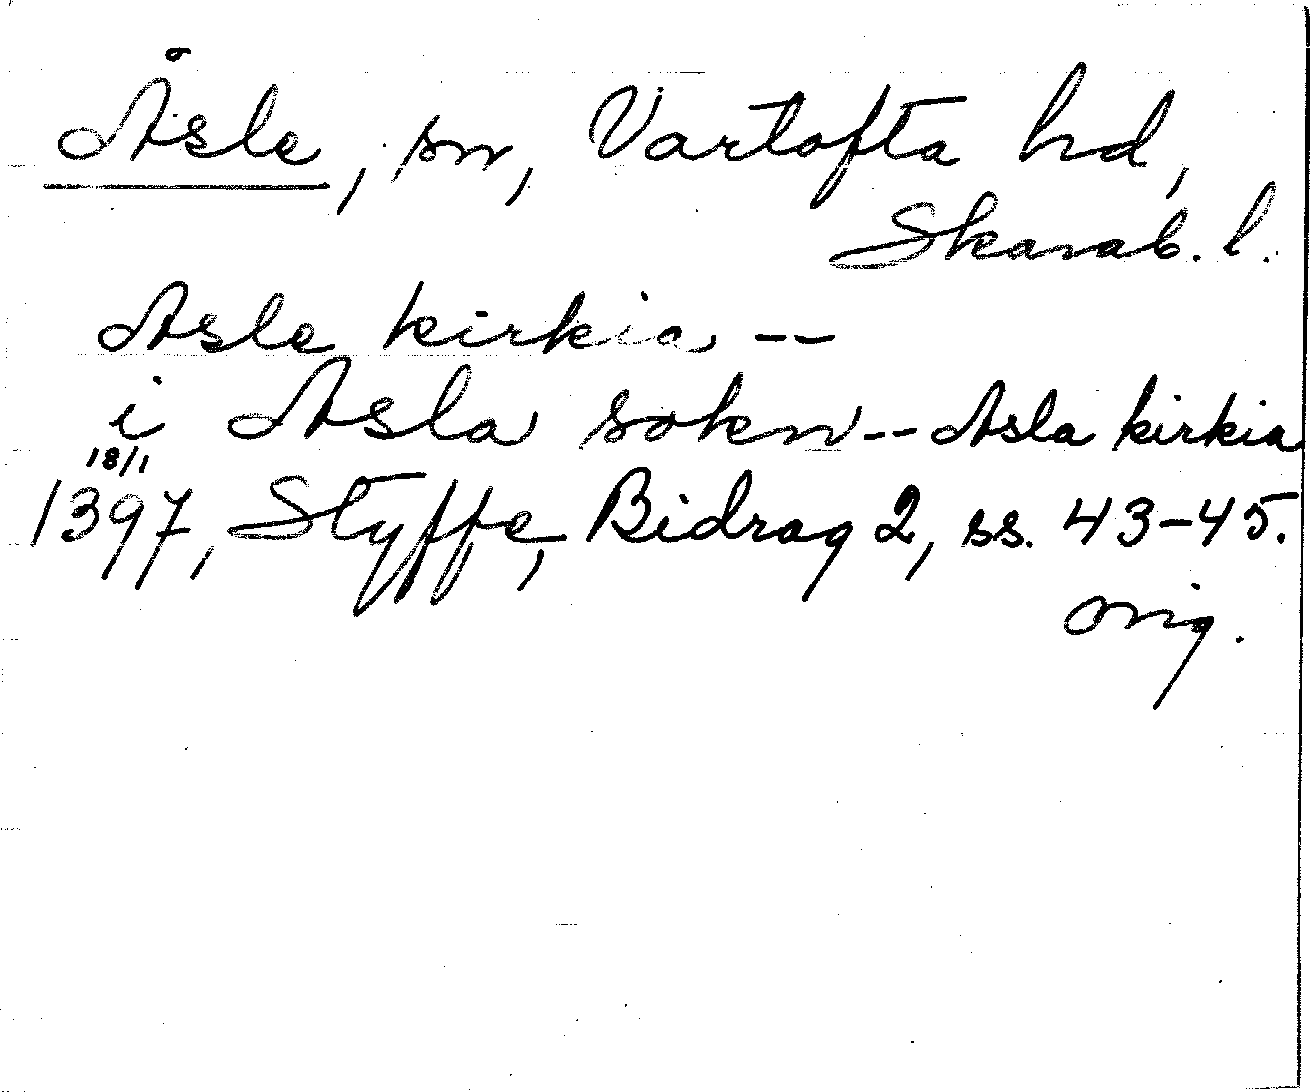 Åsle, sn, Vartofta hd,
Skarab. l.
Asle kirkia --
i Asla sokn -- Asla kirkia
18/1
1397, Styffe, Bidrag 2, ss. 43-45.
orig.